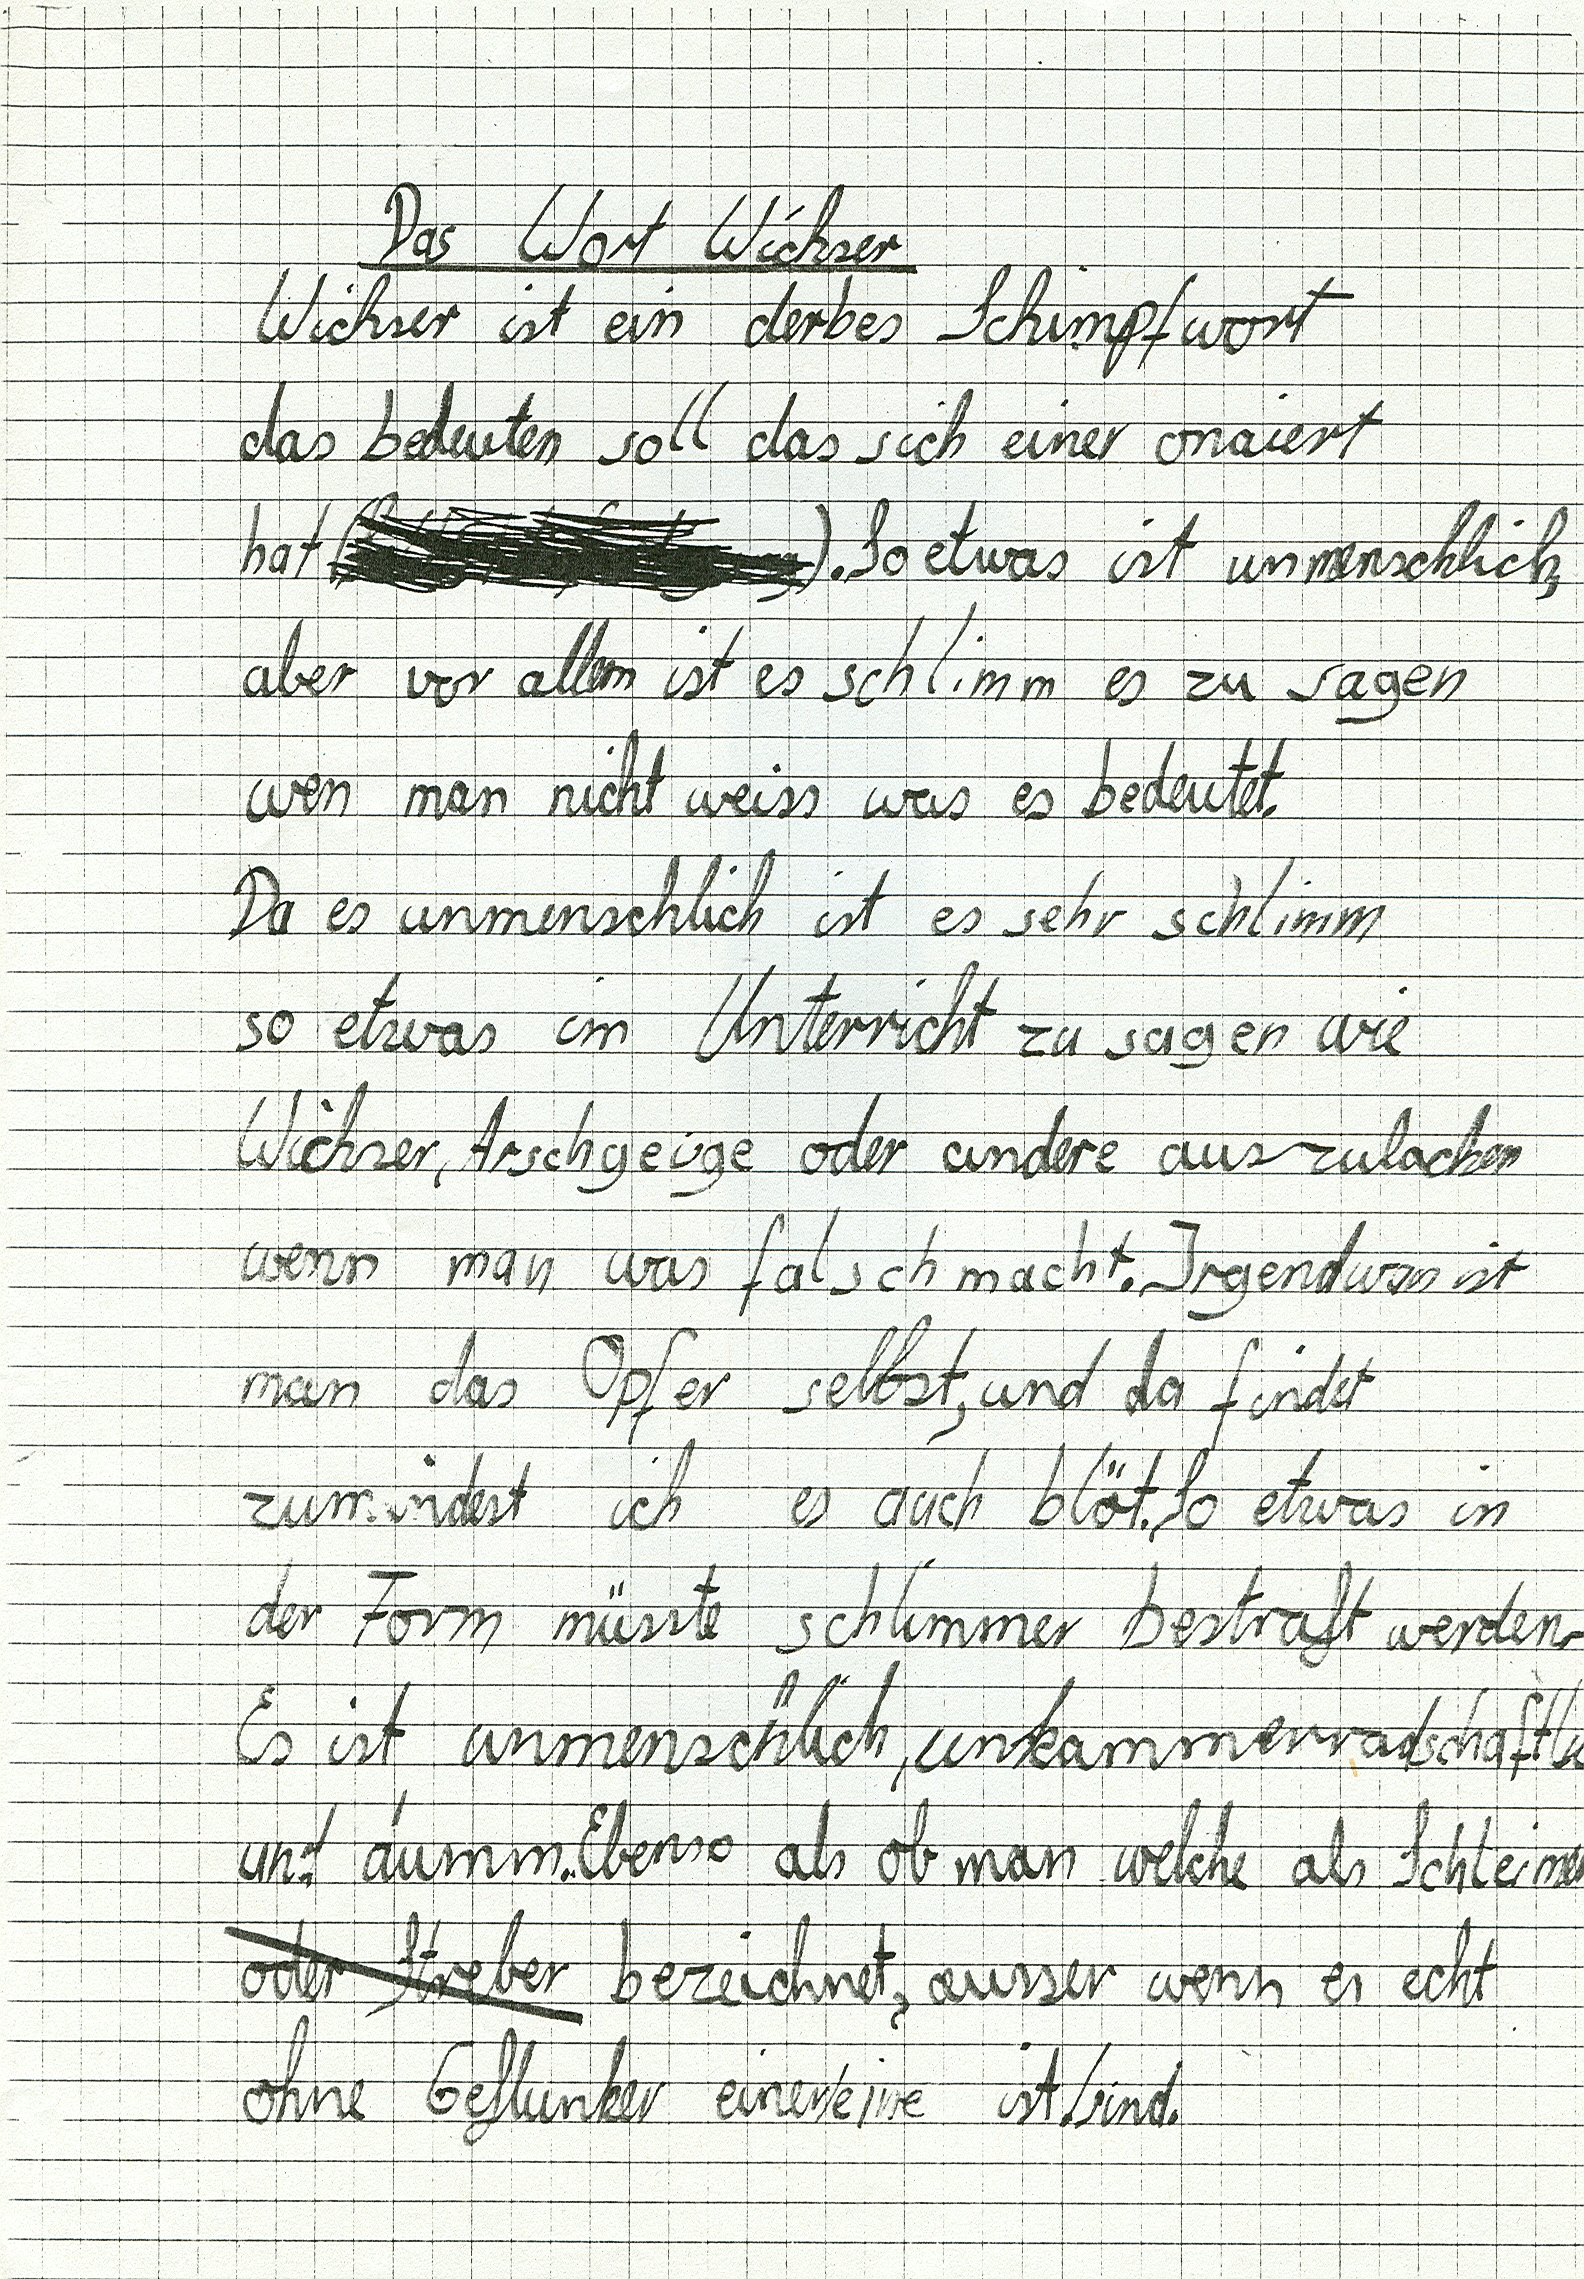 Das Wort Wichser
Wichser ist ein derbes Schimpfwort
das bedeuten soll das sich einer onaiert
hat ( ). So etwas ist unmenschlich,
aber vor allem ist es schlimm es zu sagen
wen man nicht weiss was es bedeutet.
Da es unmenschlich ist es sehr schlimm
so etwas im Unterricht zu sagen wie
Wichser, Arschgeige oder andere auszulachen
wenn man was falsch macht. Irgendwan ist
man das Opfer selbst, und da findet
zumindest ich es auch blöt. So etwas in
der Form müsste schlimmer bestraft werden.
Es ist unmenschlich, unkammerradschaftlic
und dumm. Ebenso als ob man welche als Schleimer
oder Streber bezeichnet, ausser wenn es echt
ohne Geflunker einer/eine ist/sind.